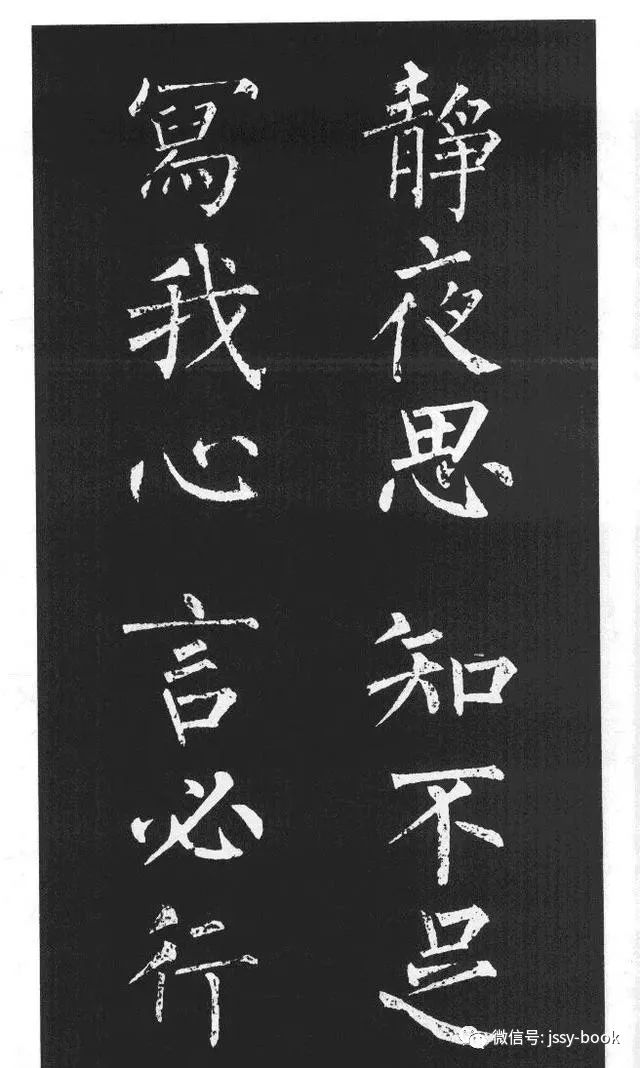 靜夜思 知不足
寫我心 言必行
微信号: jssy-book